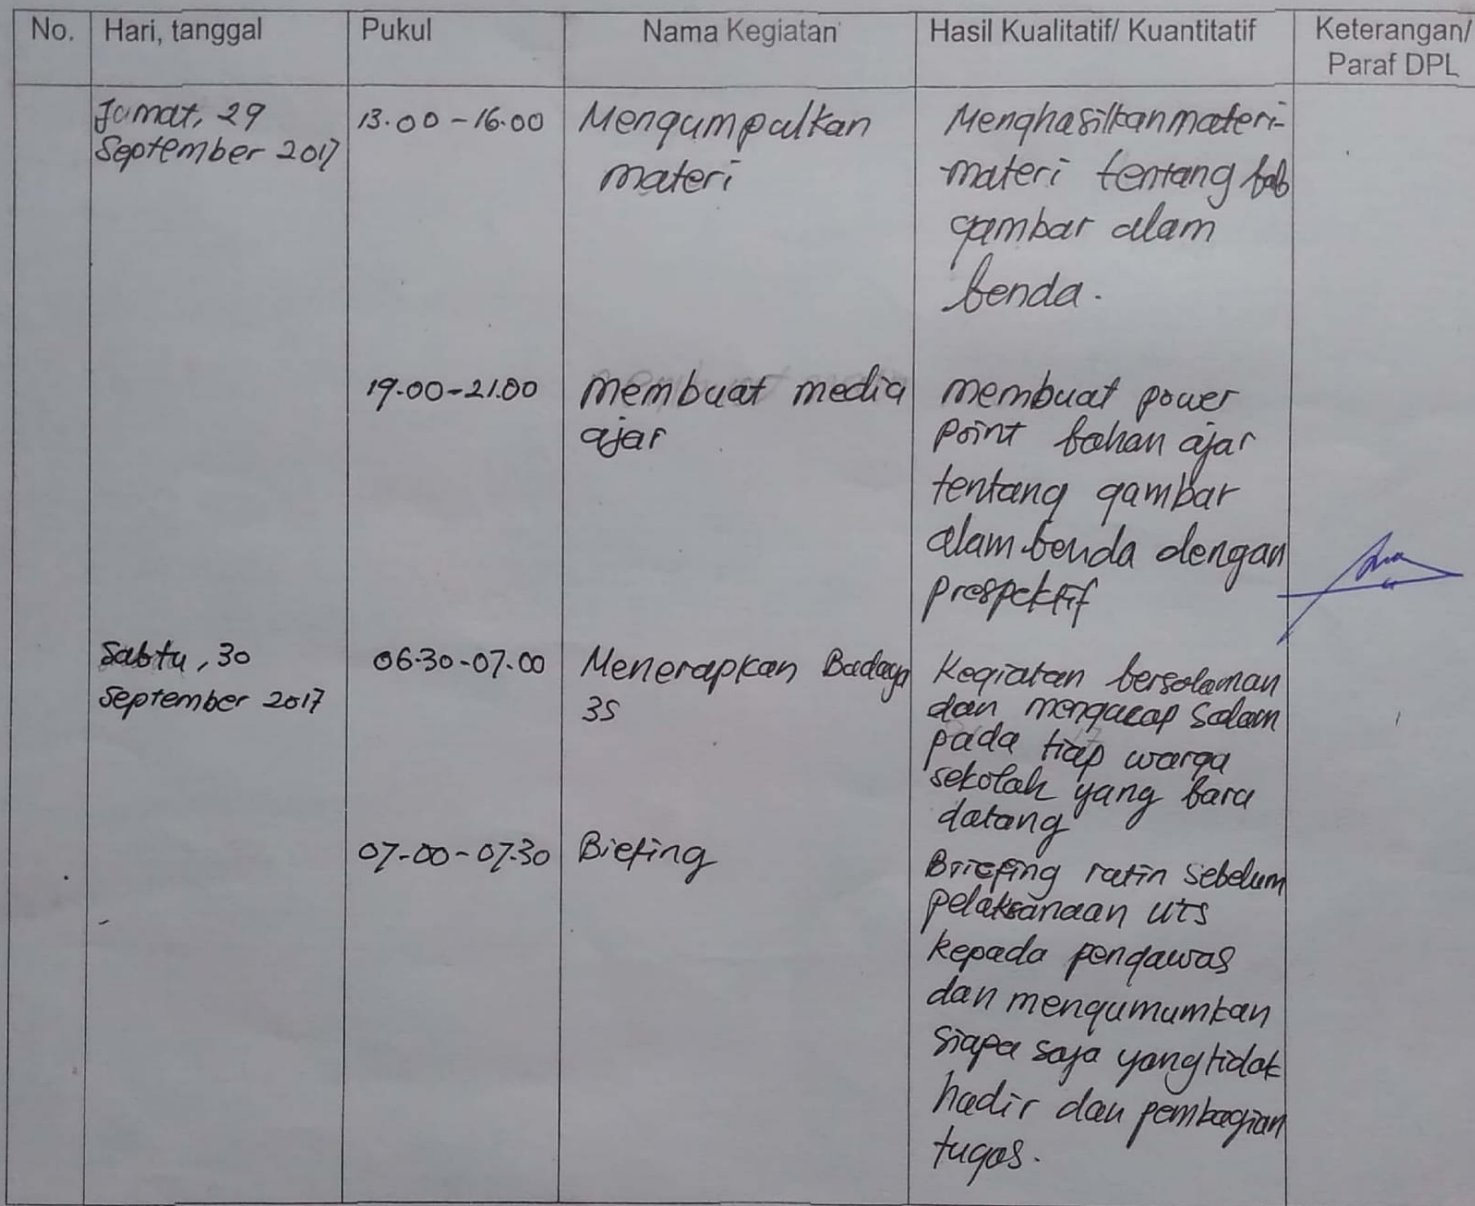 No. Hari, tanggal Pukul Nama Kegiatan Hasil Kualitatif/ Kuantitatif Keterangan/
Paraf DPL
Jumat, 29
September 2017
13.00 - 16.00
Mengumpulkan
materi
Menghasilkan materi-
materi tentang bab
gambar alam
benda.
19.00 - 21.00
membuat media
ajar
membuat power
point bahan ajar
tentang gambar
alam benda dengan
prespektif
Sabtu, 30
September 2017
06.30 - 07.00
Menerapkan Budaya
3S
Kegiatan bersalaman
dan mengucap salam
pada tiap warga
sekolah yang baru
datang
07.00 - 07.30
Briefing
Briefing rutin sebelum
pelaksanaan UTS
kepada pengawas
dan mengumumkan
siapa saja yang tidak
hadir dan pembagian
tugas.